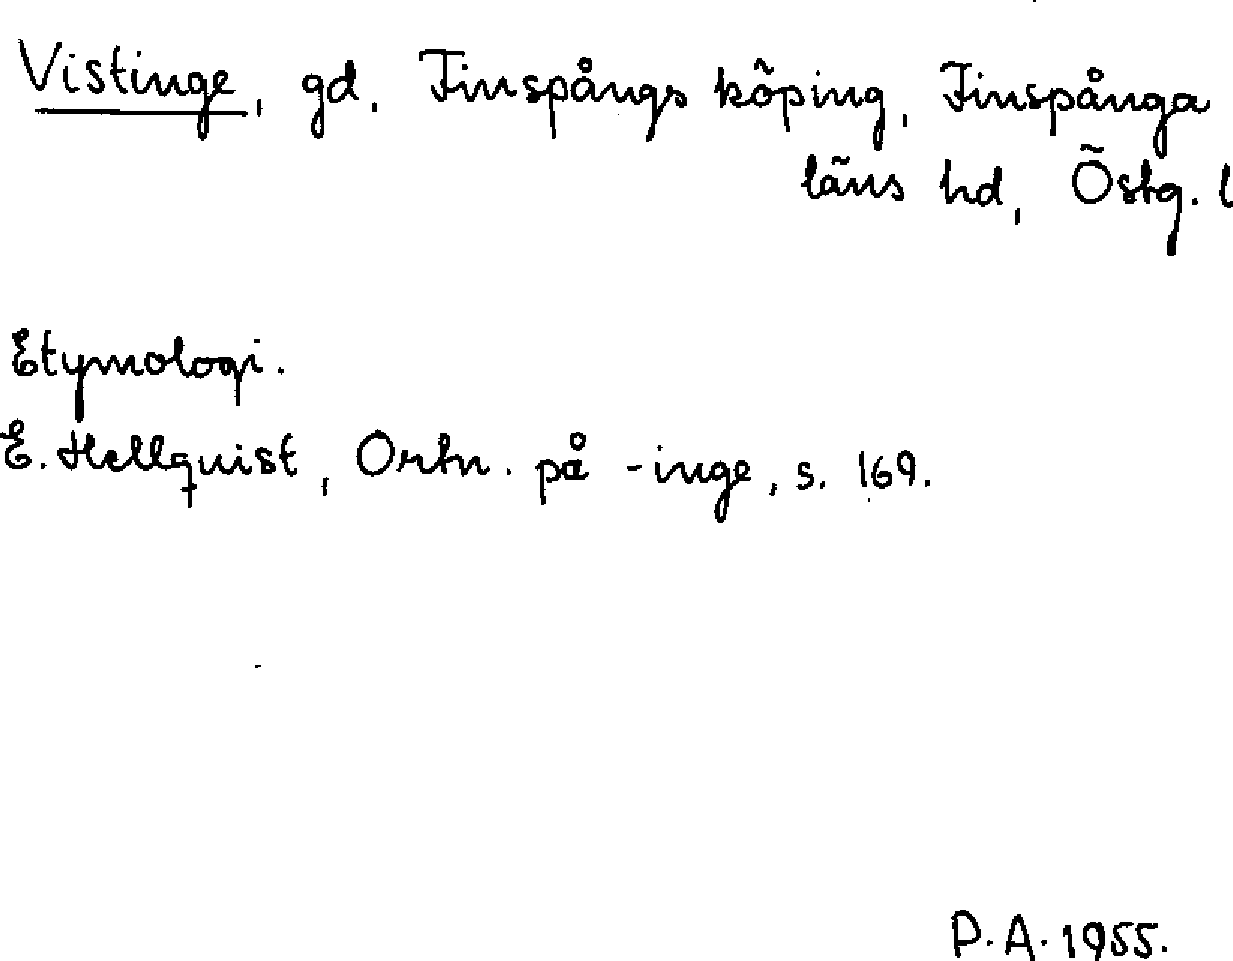 Vistinge, gd. Finspångs köping, Finspånga
läns hd, Östg. l
Etymologi.
E. Hellquist, Ortn. på -inge, s. 169.
P.A. 1955.